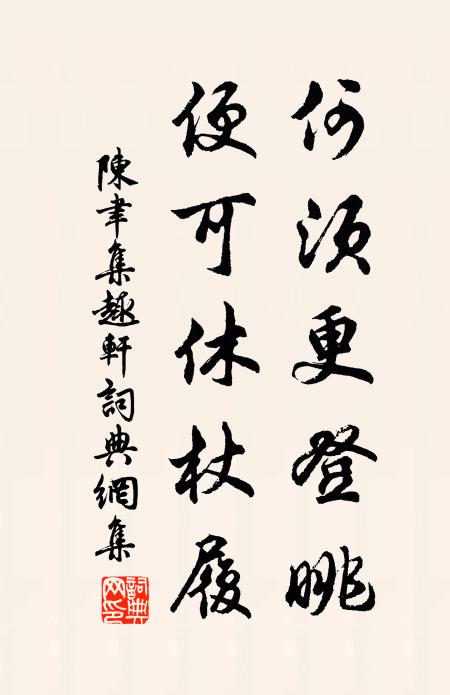 何須更登眺
便可休杖履
陳聿集趣軒詞典網集
詞典
网印